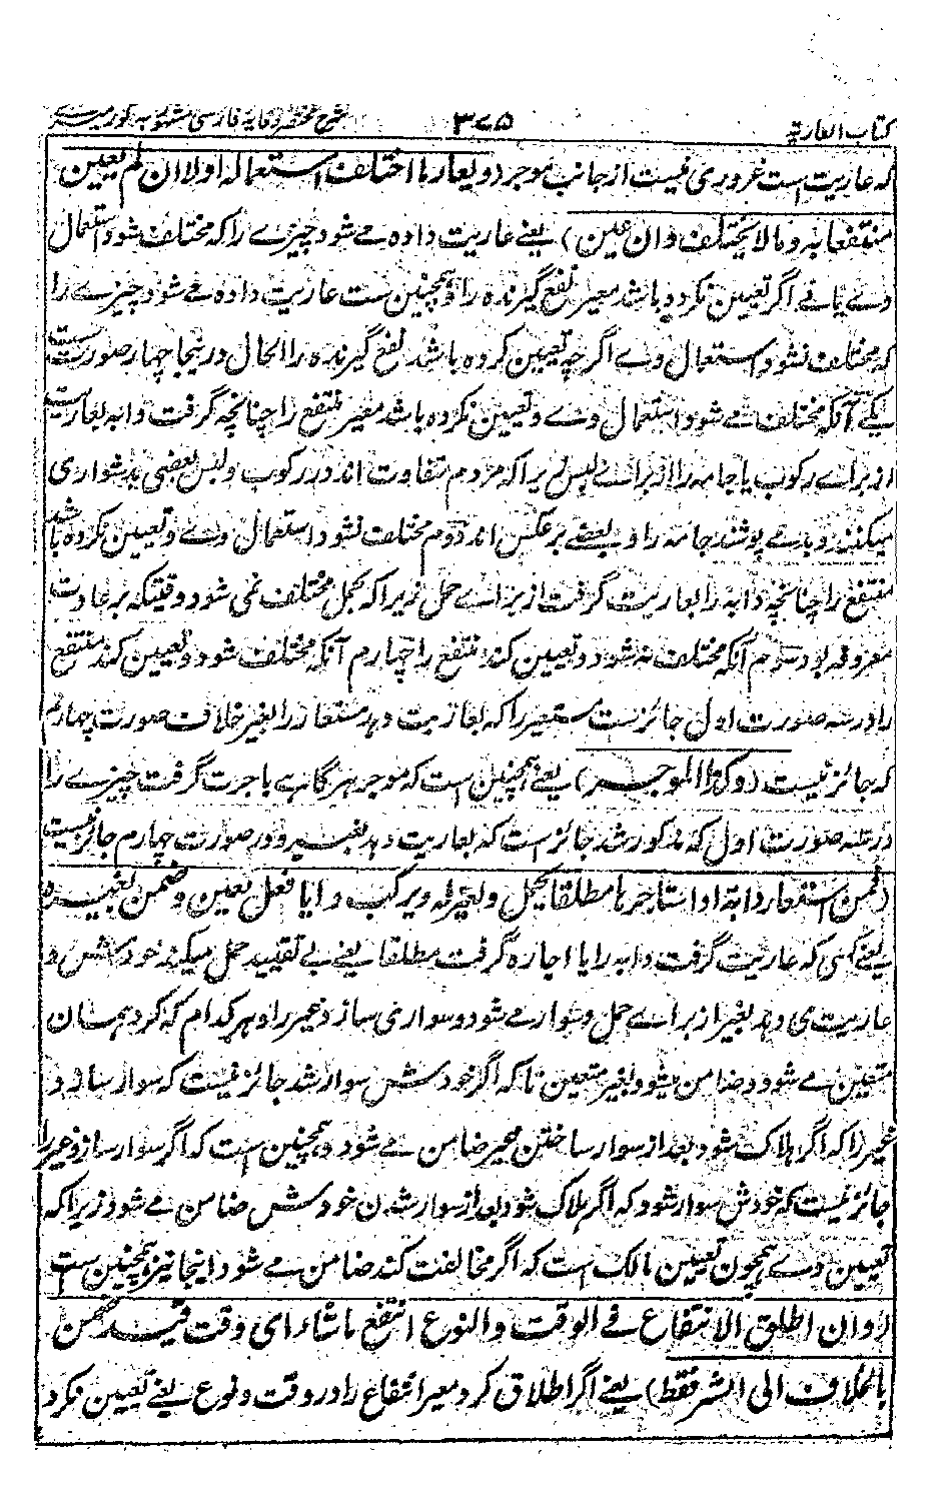 کتاب العاریة ۳۷۵ شرح مختصر وقایة فارسی
که عاریت است غروری نیست از جانب موجر (و یعار ما اختلف استعماله اولا ان لم یعین
منتفعا به و ما لا یختلف و ان عین) یعنے عاریت داده مے شود چیزے را که مختلف شود استعمال
وے یا نے اگر تعیین نکرده باشد معیر نفع گیرنده را و همچنین ست عاریت داده مے شود چیزے را
که مختلف نشود استعمال وے اگر چه تعیین کرده باشد نفع گیرنده را الحال درینجا چهار صورت ست
یکے آنکه مختلف مے شود استعمال وے و تعیین نکرده باشد معیر منتفع را چنانچه گرفت دابه بعاریت
از براے رکوب یا جامه را از براے لبس زیرا که مردم متفاوت اند در رکوب و لبس بعضی بدشواری
میکنند و پارے پوشند جامه را و بعضے برعکس اند دوم مختلف نشود استعمال وے و تعیین نکرده باشد
منتفع را چنانچه دابه را بعاریت گرفت از براے حمل زیرا که بحمل مختلف نمی شود وقتیکه بر عادت
معروفه بود سوم آنکه مختلف نه شود و تعیین کند منتفع را چهارم آنکه مختلف شود و تعیین کند منتفع
را در سه صورت اول جائزست مستعیر را که بعاریت دهد مستعار را بغیر خلاف صورت چهارم
که جائز نیست (و کذا الموجر) یعنے همچنین است که موجر هر گاہے باجرت گرفت چیزے را
در سه صورت اول که مذکور شد جائز است که بعاریت دهد بغیر و در صورت چهارم جائز نیست
(فمن استعار دابة او استاجرها مطلقا یحمل و یعیر له و یرکب و ایا فعل تعین و ضمن بغیره
یعنے کسی که عاریت گرفت دابه را یا اجاره گرفت مطلقا یعنے بے تقیید حمل میکند خودش و
عاریت می دهد بغیر از براے حمل و سوار مے شود و سواری سازد غیر را و هر کدام که کرد همان
متعین مے شود و ضامن میشود بغیر متعین تا که اگر خودش سوار شد جائز نیست که سوار سازد
غیر را که اگر هلاک شود بعد از سوار ساختن غیر ضامن مے شود و همچنین است که اگر سوار سازد غیر را
جائز نیست که خودش سوار شود که اگر هلاک شود بعد از سوار شدن خودش ضامن مے شود زیرا که
تعیین وے همچون تعیین مالک است که اگر مخالفت کند ضامن مے شود اینجا نیز همچنین است
(و ان اطلق الانتفاع فے الوقت و النوع انتفع ما شاء ای وقت قید ضمن
بالخلاف الی الشر فقط) یعنے اگر اطلاق کرد معیر انتفاع را در وقت و نوع یعنے تعیین نکرد